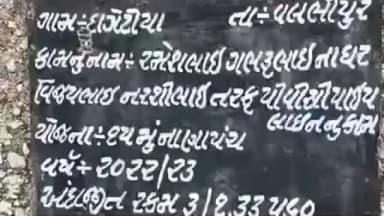 ગામ÷દાગેટીયા તા÷વલભીપુર
કામનુંનામ÷રમેશભાઈ ગભરૂભાઈ ના ઘર
વિજયભાઈ નરશીભાઈ તરફ પીવીસી પાઈપ
લાઈન નુ કામ
યોજના÷૧૫ મું નાણાપંચ
વર્ષ÷૨૦૨૨/૨૩
અંદાજીત રકમ રૂ/૧.૩૩૫૬૦